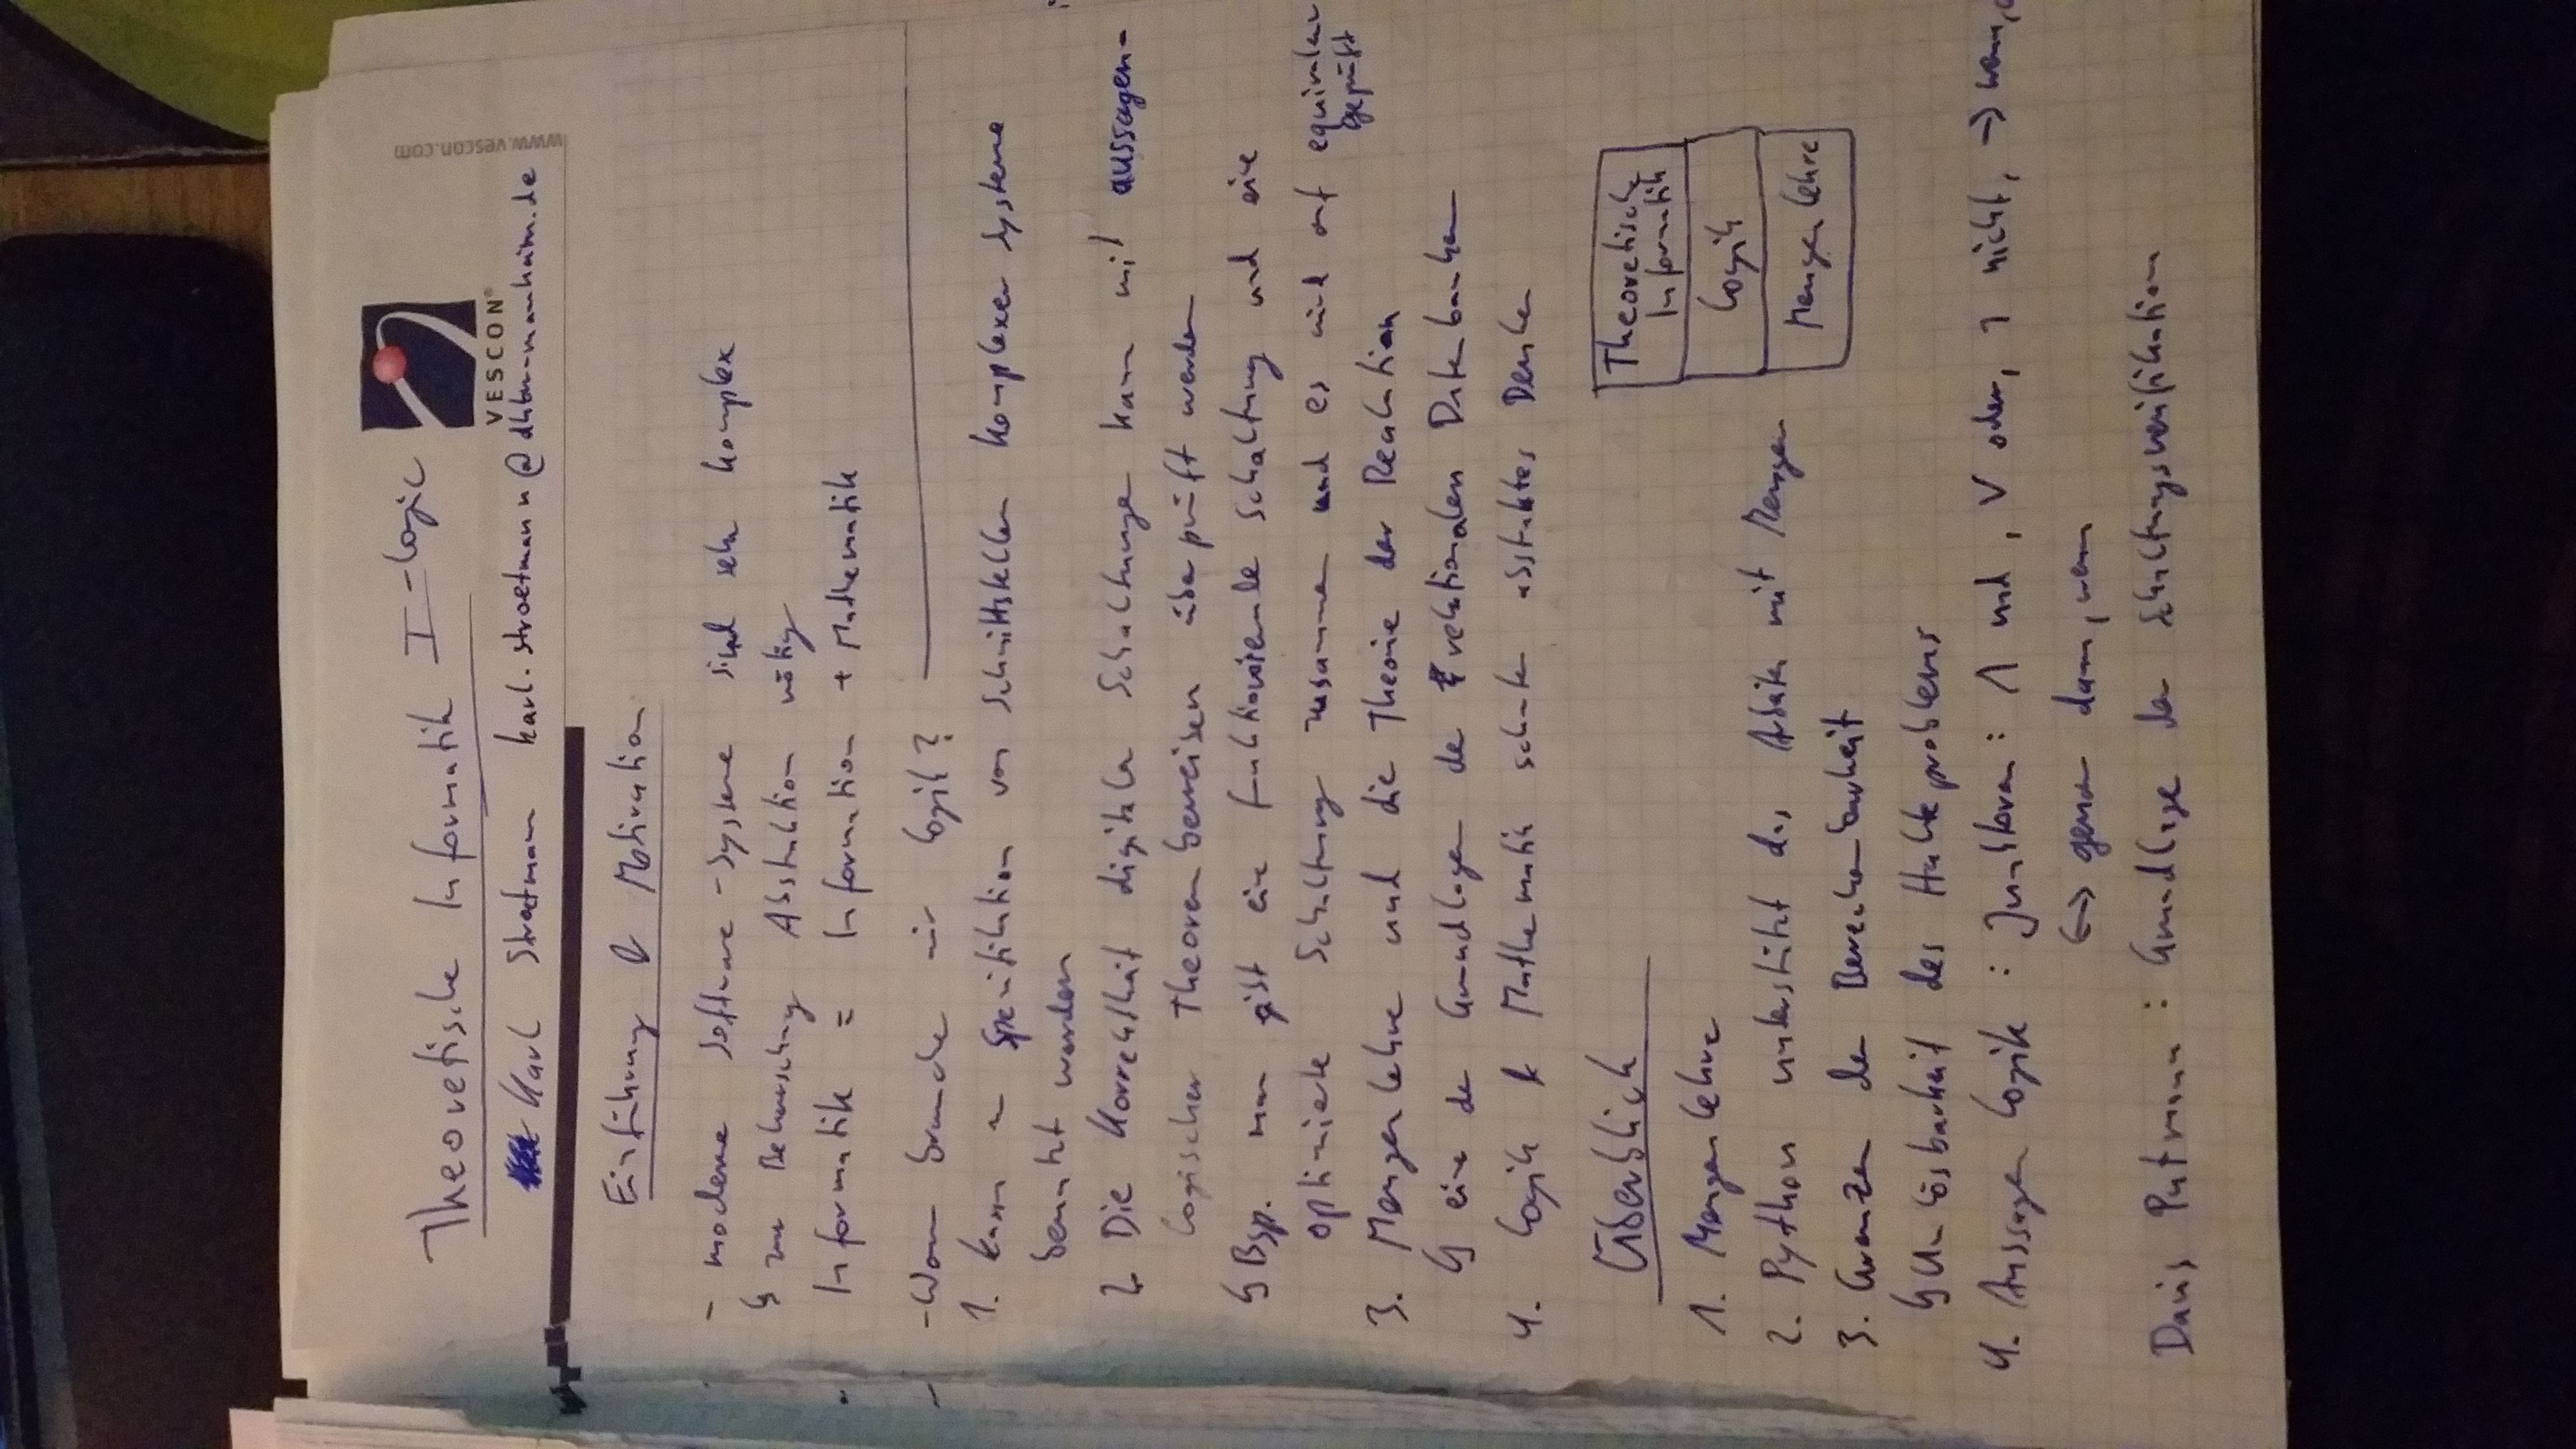 Theoretische Informatik I - Logic
VESCON®
www.vescon.com
Karl Stroetmann karl.stroetmann@dhbw-manheim.de
Einführung & Motivation
- moderne Software-Systeme sind sehr komplex
↳ zur Beherrschung Abstraktion nötig
Informatik = Information + Mathematik
- Warum brauche wir Logik?
1. kann zur Spezifikation von Schnittstellen komplexer Systeme
benutzt werden
2. Die Korrektheit digitaler Schaltungen kann mit aussagen-
logischen Theorembeweisen überprüft werden
↳ Bsp. man gibt eine funktionierende Schaltung und eine
optimierte Schaltung zusammen und es wird auf
geprüft
3. Mengenlehre und die Theorie der
↳ eine der Grundlagen der relationalen Datenbanken
4. Logik & Mathematik schulen abstraktes Denken
Überblick
Theoretische
Informatik
Logik
Mengenlehre
1. Mengenlehre
2. Python unterstützt das Arbeiten mit Mengen
3. Grenzen der Berechenbarkeit
↳ Unlösbarkeit des Halteproblems
4. Aussagenlogik : Junktoren: ∧ und, ∨ oder, ¬ nicht, → wenn,
↔ genau dann, wenn
Davis Putmann : Grundlage der Schaltungsverifikation